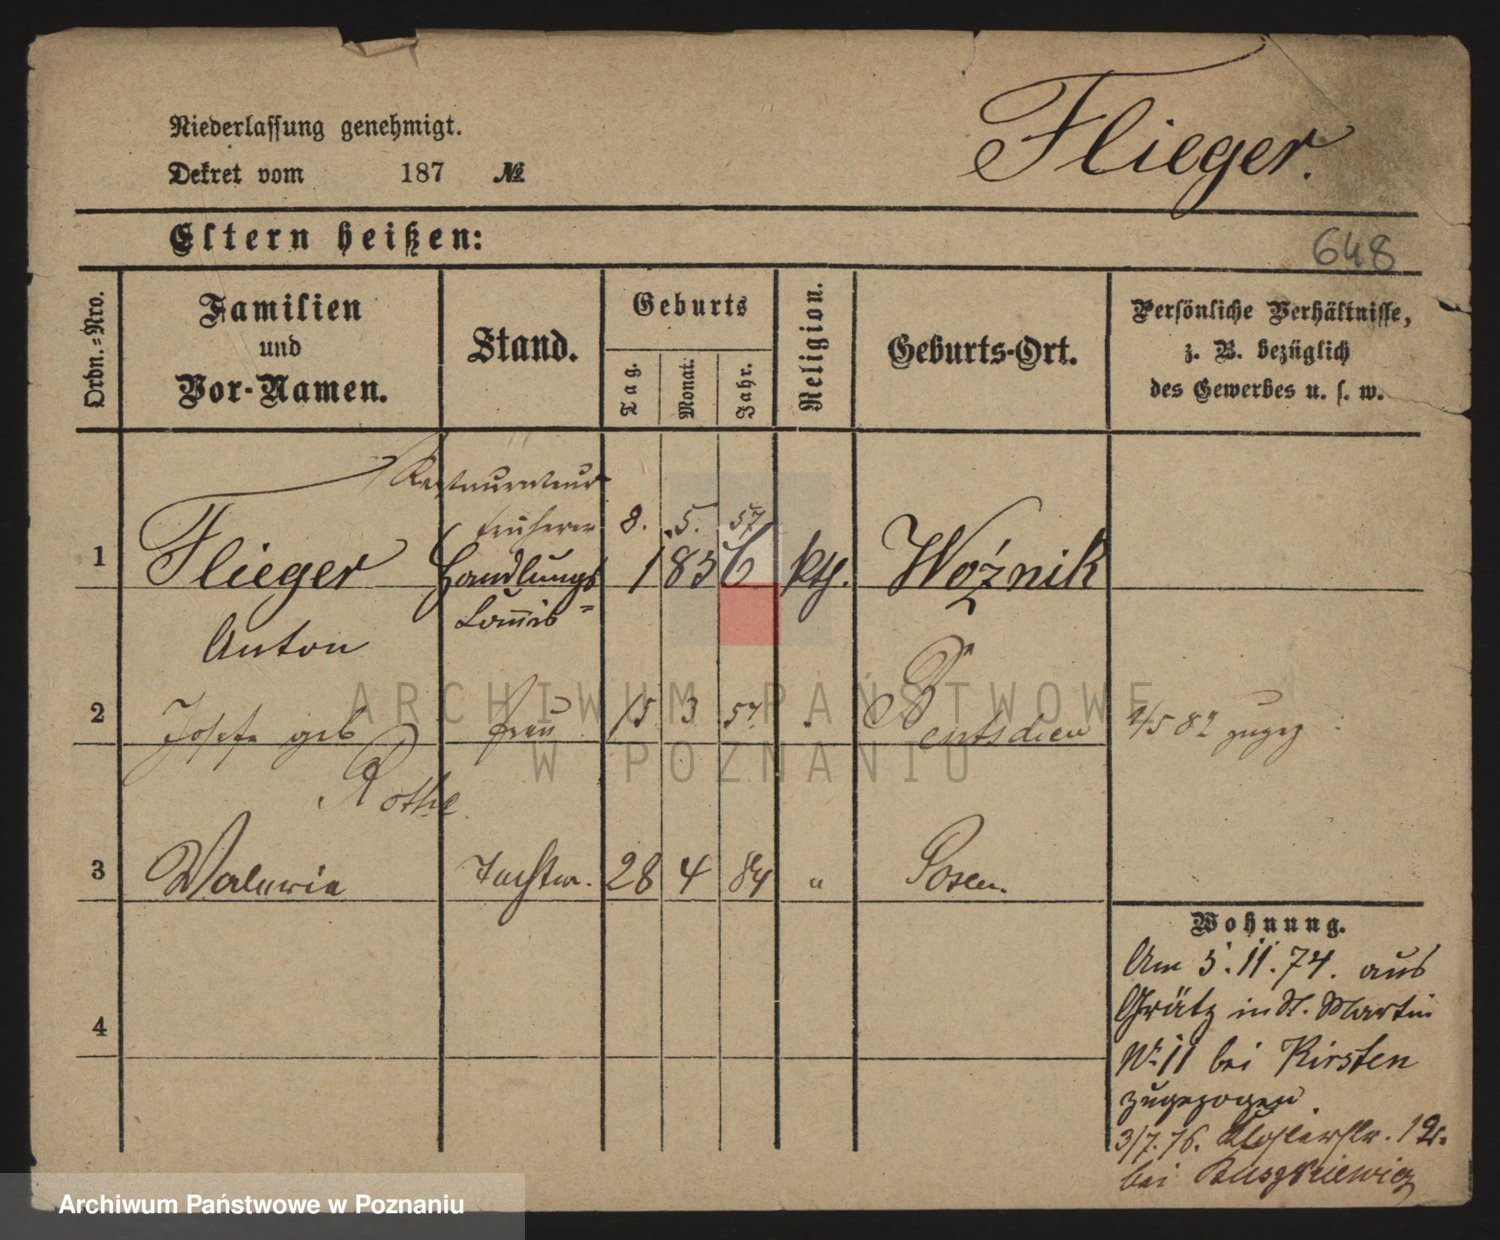 Niederlassung genehmigt.
Dekret vom 187 №
Flieger.
Eltern heißen:
648
Ordn.-Nro.
Familien
und
Vor-Namen.
Stand.
Geburts
Tag.
Monat.
Jahr.
Religion.
Geburts-Ort.
Persönliche Verhältnisse,
z. B. bezüglich
des Gewerbes u. s. w.
Restaurateur
früherer
8. 5. 57
1 Flieger Handlungs 1856 kth. Woźnik
Commis
Anton
2 Josefa geb Frau 15 3 57 Bentschen 4/5 82 zugez
Rothe
3 Valeria Tochter. 28 4 84 " Posen.
4
Wohnung.
Am 5.11.74. aus
Grätz in St. Martin
No 11 bei Kirsten
zugezogen
3/7.76. Klosterstr.
bei
ARCHIWUM PAŃSTWOWE
W POZNANIU
Archiwum Państwowe w Poznaniu